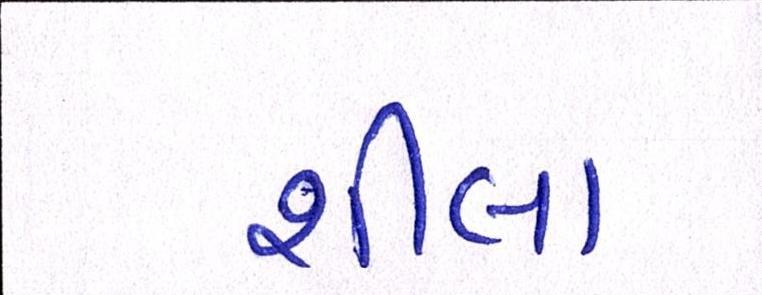 શીલા